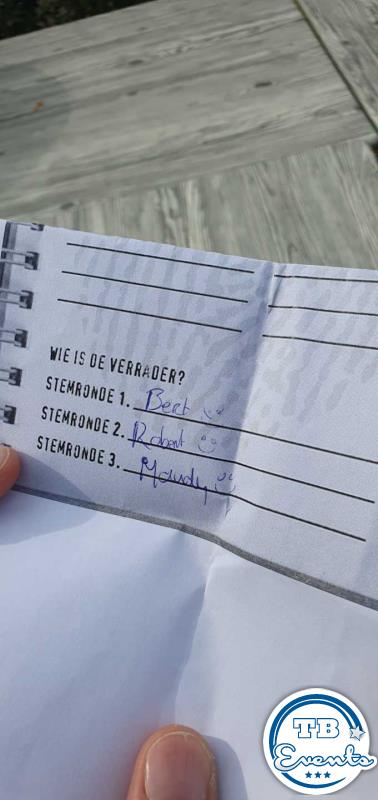 WIE IS DE VERRADER?
STEMRONDE 1. Bert
STEMRONDE 2. Robert
STEMRONDE 3. Maudy
TB
Events